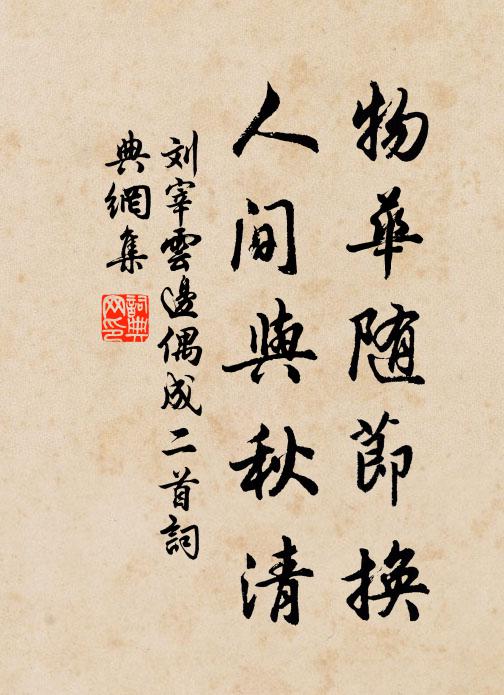 物華随節換
人间與秋清
刘宰雲邊偶成二首詞
典網集
詞典
网印